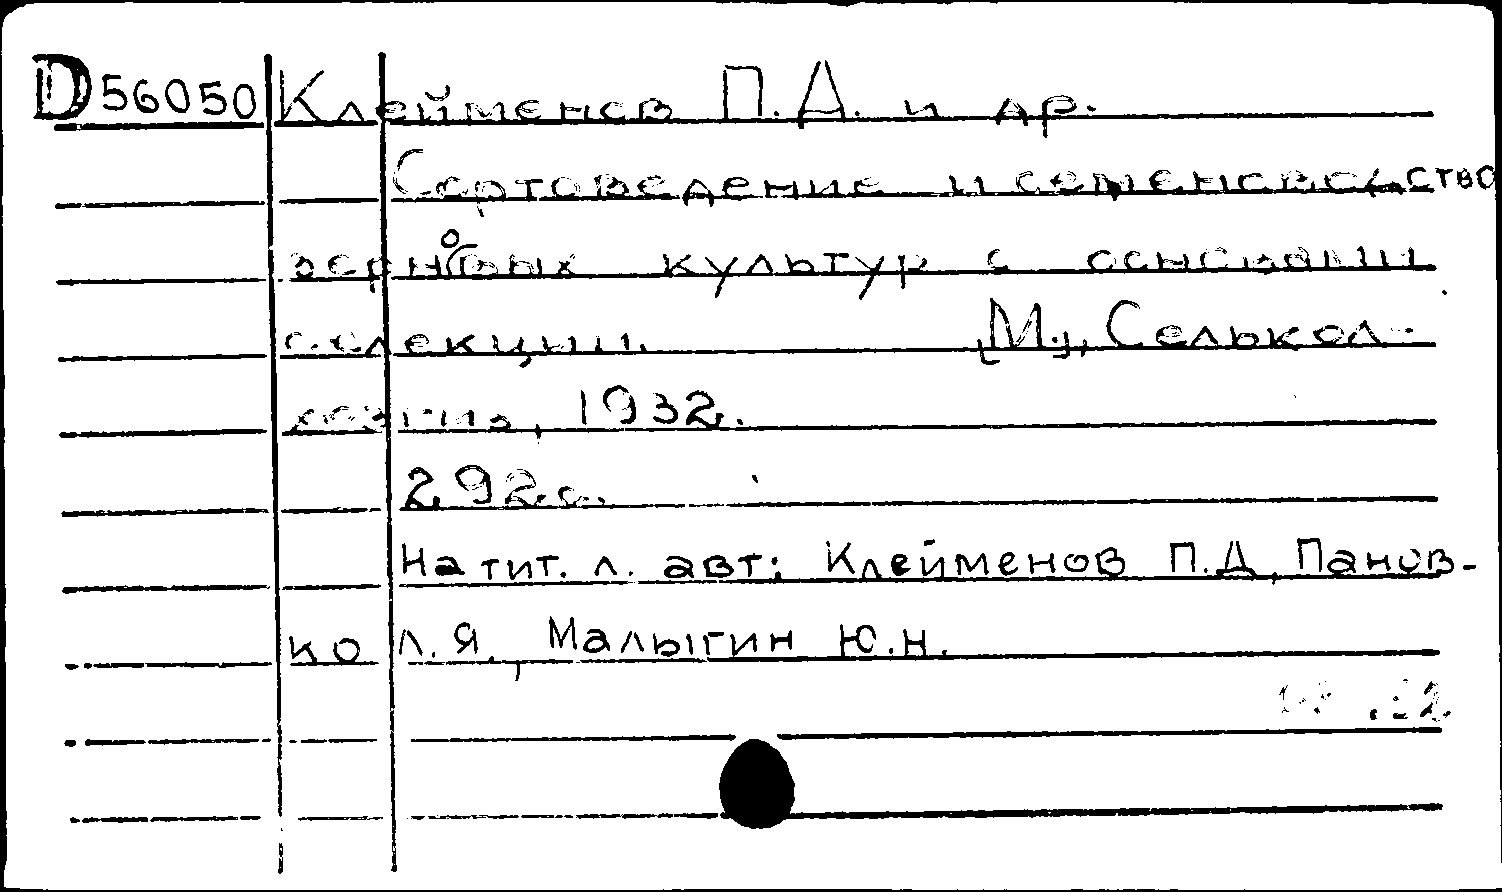 D56050 Клейменов П.Д. и др.
Сортоведение и семеноводство
зерновых культур с основами
селекции. [М.], Селькол-
хозгиз, 1932.
292 с.
На тит. л. авт: Клейменов П.Д, Панов-
ко Л.Я., Малыгин Ю.Н.